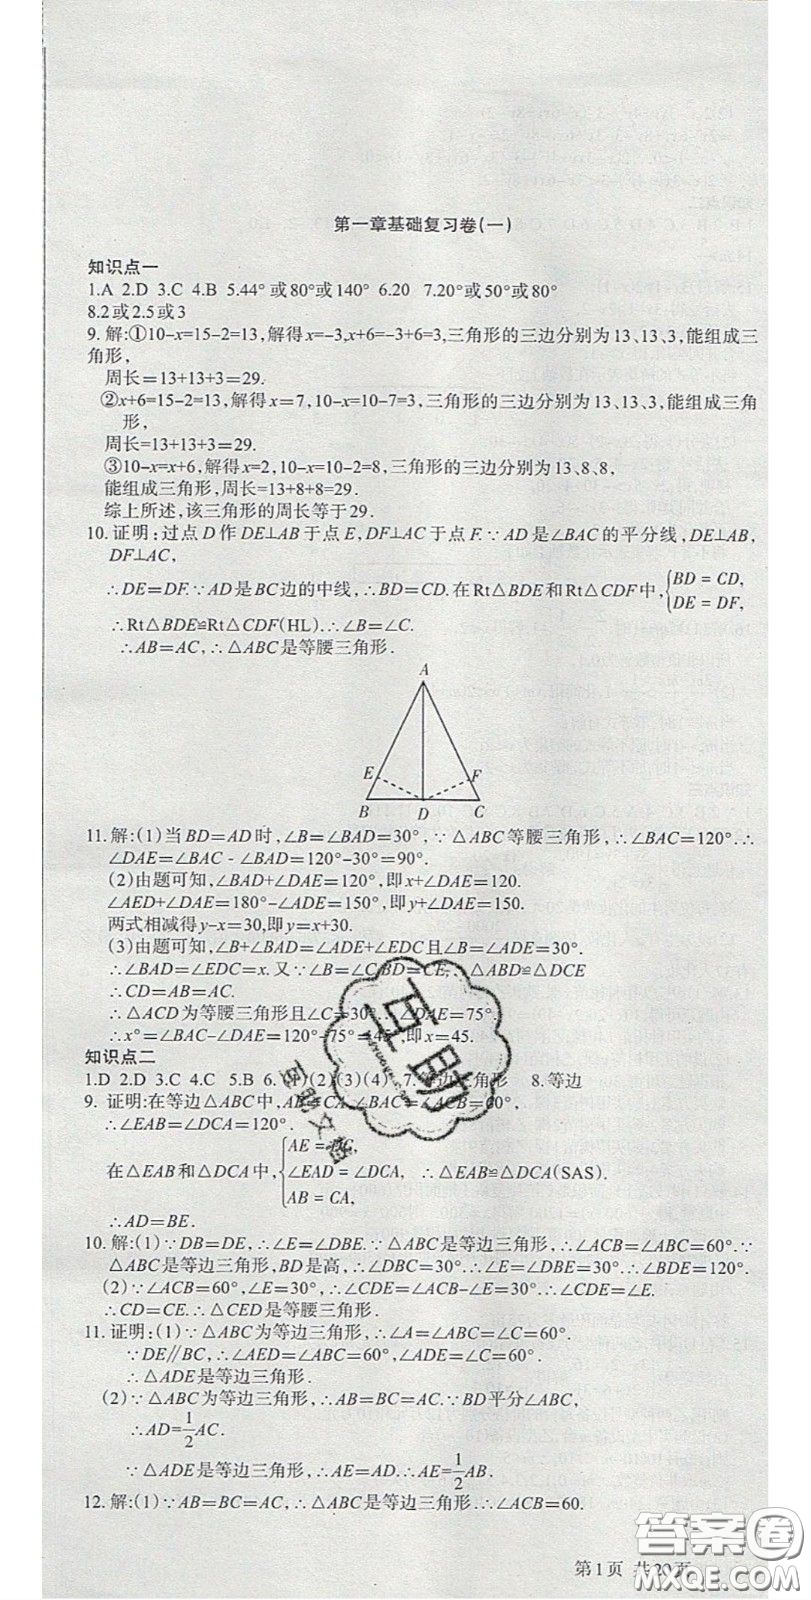 第一章基础复习卷(一)
知识点一
1.A 2.D 3.C 4.B 5.44°或80°或140° 6.20 7.20°或50°或80°
8.2或2.5或3
9.解:①10-x=15-2=13,解得x=-3,x+6=-3+6=3,三角形的三边分别为13、13、3,能组成三
角形,
周长=13+13+3=29.
②x+6=15-2=13,解得x=7,10-x=10-7=3,三角形的三边分别为13、13、3,能组成三角
形,
周长=13+13+3=29.
③10-x=x+6,解得x=2,10-x=10-2=8,三角形的三边分别为13、8、8,
能组成三角形,周长=13+8+8=29.
综上所述,该三角形的周长等于29.
10.证明:过点D作DE⊥AB于点E,DF⊥AC于点F.∵AD是∠BAC的平分线,DE⊥AB,
DF⊥AC,
∴DE=DF.∵AD是BC边的中线,∴BD=CD.在Rt△BDE和Rt△CDF中,{BD=CD,
DE=DF,
∴Rt△BDE≌Rt△CDF(HL).∴∠B=∠C.
∴AB=AC,∴△ABC是等腰三角形.
A
E F
B D C
11.解:(1)当BD=AD时,∠B=∠BAD=30°,∵△ABC等腰三角形,∴∠BAC=120°.∴
∠DAE=∠BAC-∠BAD=120°-30°=90°.
(2)由题可知,∠BAD+∠DAE=120°,即x+∠DAE=120.
∠AED+∠DAE=180°-∠ADE=150°,即y+∠DAE=150.
两式相减得y-x=30,即y=x+30.
(3)由题可知,∠B+∠BAD=∠ADE+∠EDC且∠B=∠ADE=30°.
∴∠BAD=∠EDC=x.又∵∠B=∠C,BD=CE,∴△ABD≌△DCE
∴CD=AB=AC.
∴△ACD为等腰三角形且∠C=30°.∴∠DAE=75°.
∴x°=∠BAC-∠DAE=120°-75°=45°,即x=45.
知识点二
1.D 2.D 3.C 4.C 5.B 6.(1)(2)(3)(4) 7.等边三角形 8.等边
9.证明:在等边△ABC中,AB=CA,∠BAC=∠ACB=60°,
∴∠EAB=∠DCA=120°.
在△EAB和△DCA中,{AE=DC,
∠EAB=∠DCA, ∴△EAB≌△DCA(SAS).
AB=CA,
∴AD=BE.
10.解:(1)∵DB=DE,∴∠E=∠DBE.∵△ABC是等边三角形,∴∠ACB=∠ABC=60°.∵
△ABC是等边三角形,BD是高,∴∠DBC=30°.∴∠E=∠DBE=30°.∴∠BDE=120°.
(2)∵∠ACB=60°,∠E=30°,∴∠CDE=∠ACB-∠E=30°.∴∠CDE=∠E.
∴CD=CE.∴△CED是等腰三角形.
11.证明:(1)∵△ABC为等边三角形,∴∠A=∠ABC=∠C=60°.
∵DE∥BC,∴∠AED=∠ABC=60°,∠ADE=∠C=60°.
∴△ADE是等边三角形.
(2)∵△ABC为等边三角形,∴AB=BC=AC.∵BD平分∠ABC,
∴AD=1/2AC.
∵△ADE是等边三角形,∴AE=AD.∴AE=1/2AB.
12.解:(1)∵AB=BC=AC,∴△ABC是等边三角形.∴∠ACB=60.
第1页 共20页
互助
互助文
答案圈
MXQE.COM